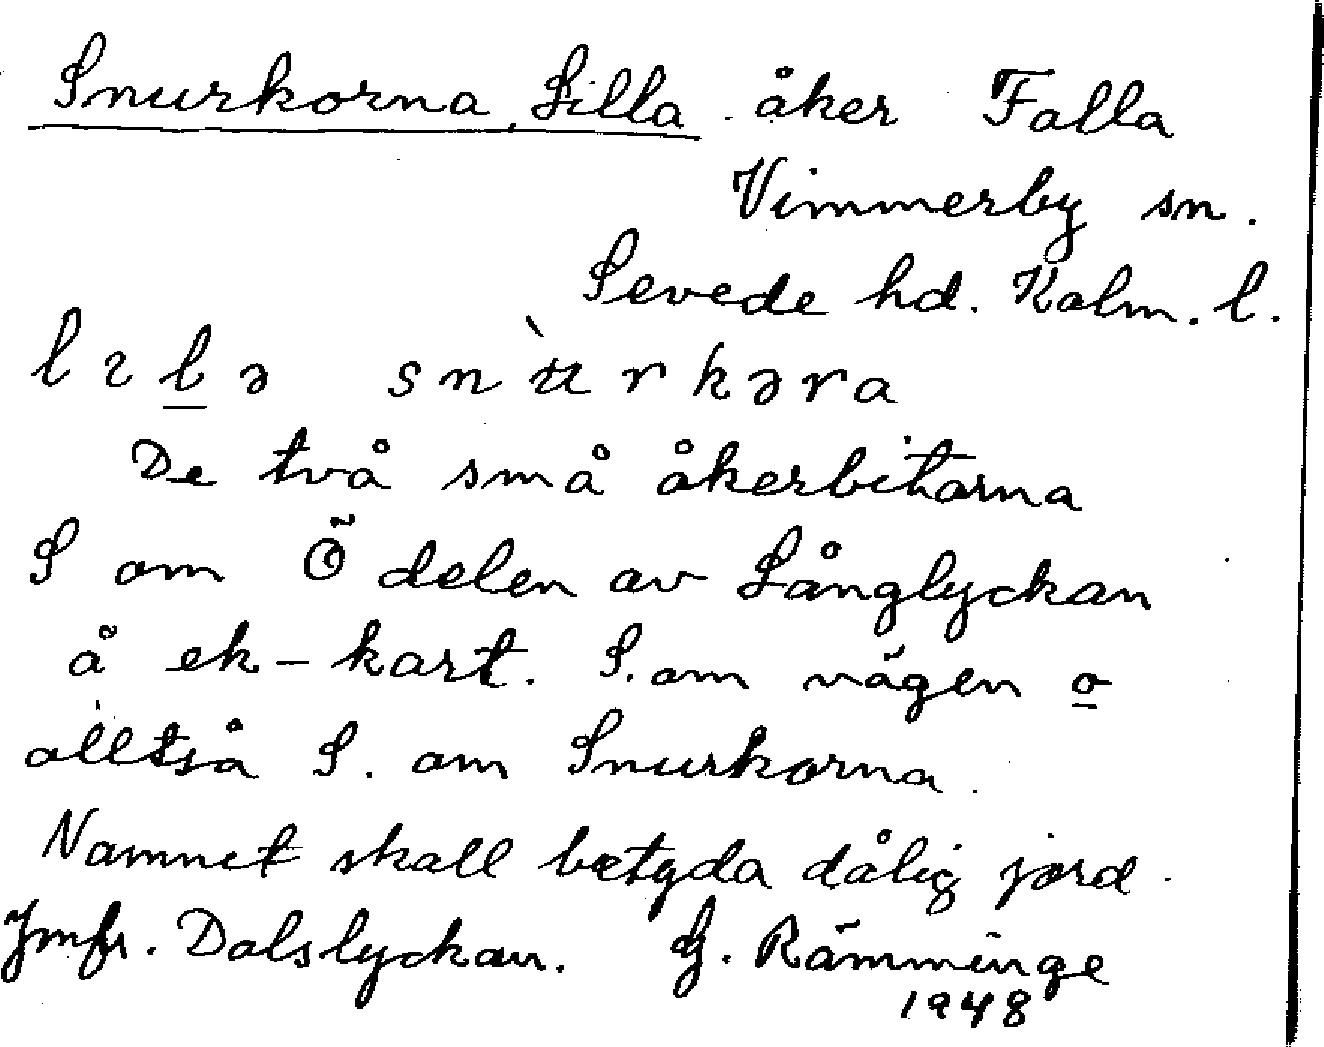 Snurkorna, Lilla åker Falla
Vimmerby sn.
Sevede hd. Kalm. l.
lɩl̲ə snùrkəra
De två små åkerbitarna
S om Ö delen av Långlyckan
å ek-kart. S. om vägen o̲
alltså S. om Snurkorna.
Namnet skall betyda dålig jord.
Jmfr. Dalslyckan. G. Rämminge
1948